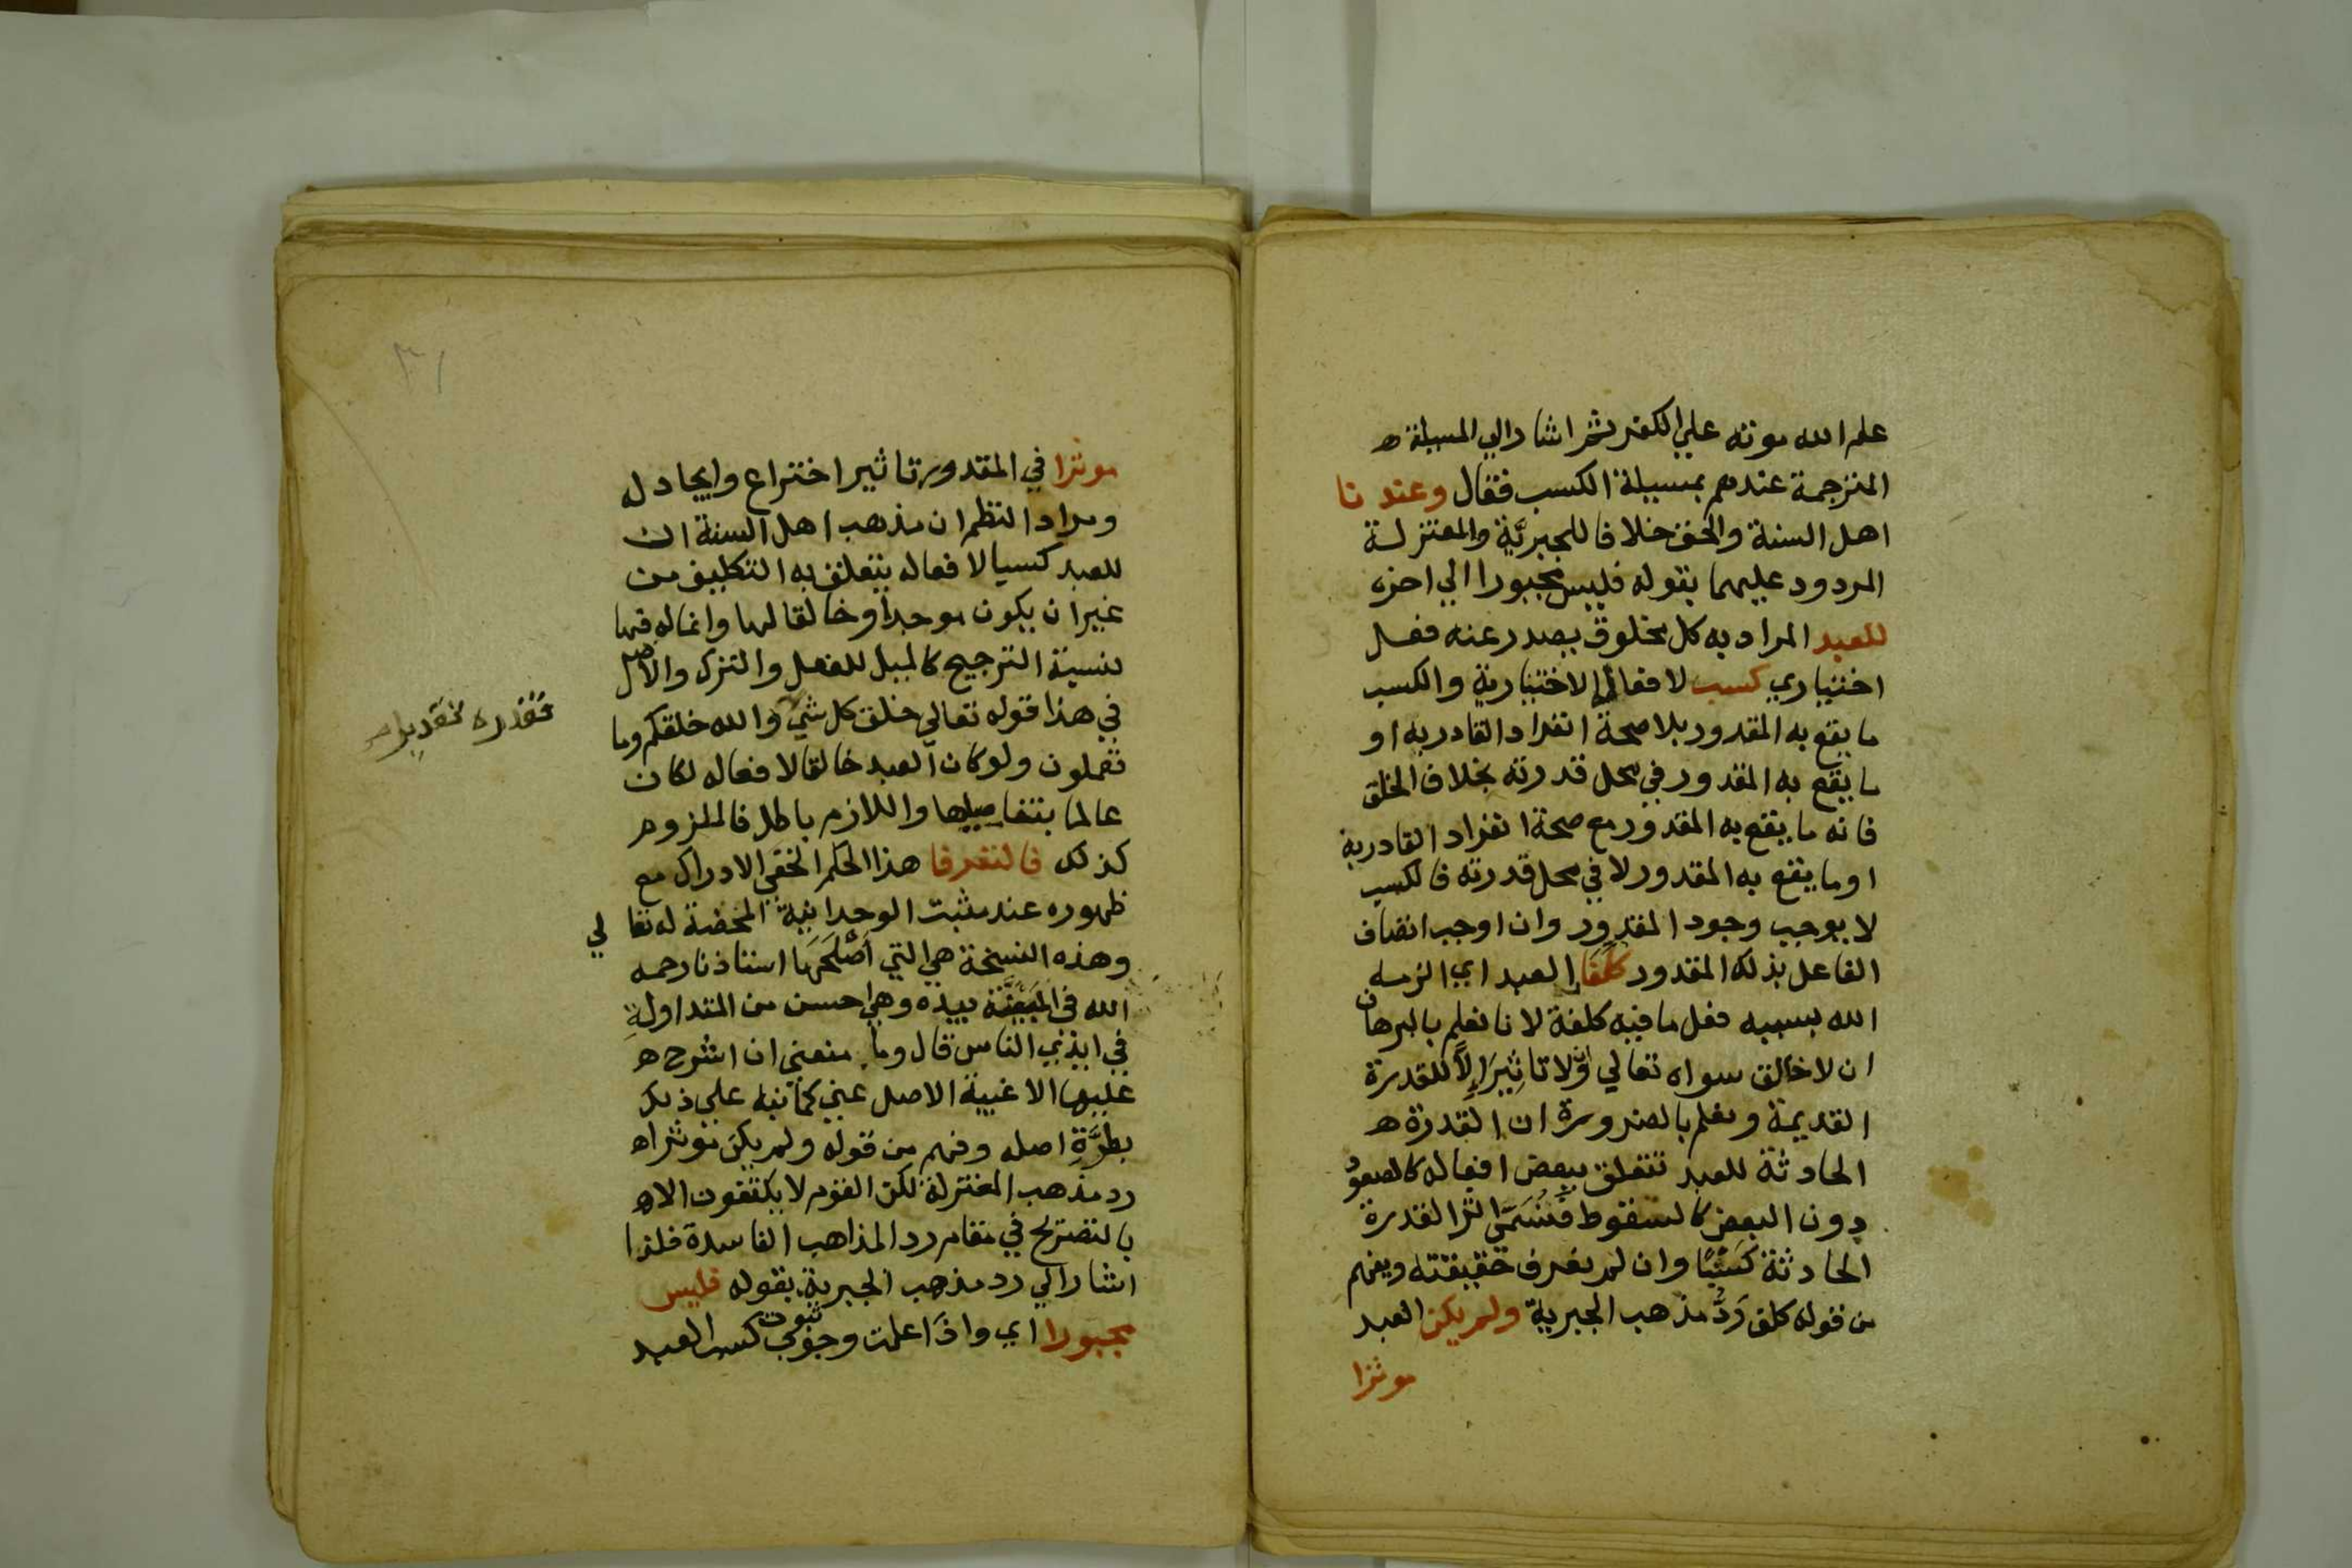 علم الله موته علي الكفر ثم اشار الي المسيلة ه
المترجمة عندهم بمسيلة الكسب فقال وعندنا
اهل السنة والحق خلافا للجبريَّة والمعتزلة
المردود عليهما بقوله فليس مجبورا الي اخره
للعبد المراد به كل مخلوق يصدر عنه فعل
اختياري كسب لافعاله الاختيارية والكسب
ما يقع به المقدور بلا صحة انفراد القادر به او
ما يقع به المقدور في محل قدرته بخلاف الخلق
فانه ما يقع به المقدور مع صحة انفراد القادر به
او ما يقع به المقدور لا في محل قدرته فالكسب
لا يوجب وجود المقدور وان اوجب اتصاف
الفاعل بذلك المقدور كلفا العبد اي الزمه
الله بسببه فعل ما فيه كلفة لانا نعلم بالبرهان
ان لا خالق سواه تعالي ولا تاثيرَ إلاَّ للقدرة
القديمة ونعلم بالضرورة ان القدرة ه
الحادثة للعبد تتعلق ببعض افعاله كالصعود
دون البعض كالسقوط فَتُسَمَّي اثر القدرة
الحادثة كَسْبًا وان لم نعرف حقيقته ويفهم
من قوله كلف رَدُّ مذهب الجبرية ولم يكن العبد
موثرا
موثرا في المقدور تاثير اختراع وايجاد له
ومراد النظم ان مذهب اهل السنة ان
للعبد كسبا لافعاله يتعلق به التكليف من
غير ان يكون موجدا وخالقا لها وانما له فيها
نسبة الترجيح كالميل للفعل والترك والاصل
في هذا قوله تعالي خلق كل شيء والله خلقكم وما
فقدره تقديرا ه
تعملون ولو كان العبد خالقا لافعاله لكان
عالما بتفاصيلها واللازم باطل فالملزوم
كذلك فالتعرفا هذا الحكم الخفي الادراك مع
ظهوره عند مثبت الوحدانية المحضة له تعالي
وهذه النسخة هي التي أَصْلَحَهَا استاذنا رحمه
الله في المبيضة بيده وهي احسن من المتداولةِ
في ايدي الناس قال وما منعني ان اشرح ه
عليها الا غيبة الاصل عني كما نبه علي ذلك
بطُرَّةِ اصله وفهم من قوله ولم يكن موثرا ه
رد مذهب المعتزلة لكن القوم لا يكتفون الا ه
بالتصريح في مقام رد المذاهب الفاسدة فلذا
اشار الي رد مذهب الجبرية بقوله فليس
مجبورا اي واذا علمت وجوب ثبوت كسب العبد